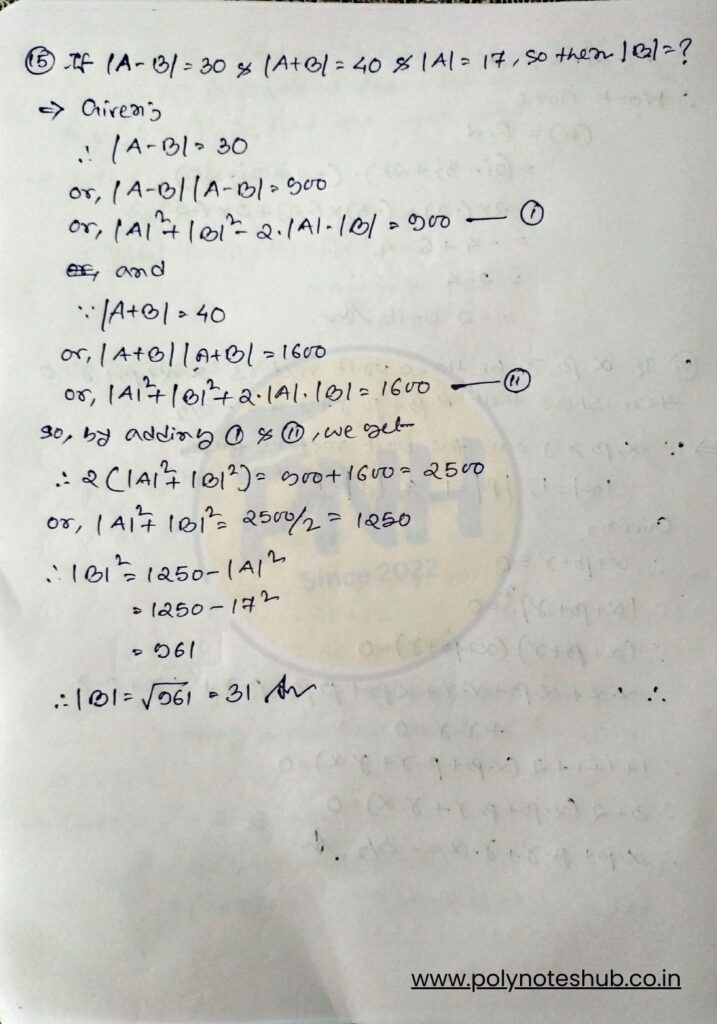 ⑮ If |A-B| = 30 & |A+B| = 40 & |A| = 17, so then |B| = ?
=> Given;
∴ |A-B| = 30
or, |A-B||A-B| = 900
or, |A|²+|B|²-2.|A|.|B| = 900 — ⓘ
or, and
∵ |A+B| = 40
or, |A+B||A+B| = 1600
or, |A|²+|B|²+2.|A|.|B| = 1600 — ⓘⓘ
so, by adding ⓘ & ⓘⓘ, we get
∴ 2(|A|²+|B|²) = 900+1600 = 2500
or, |A|²+|B|² = 2500/2 = 1250
∴ |B|² = 1250-|A|²
= 1250-17²
= 961
∴ |B| = √961 = 31 Ans
PNH
Since 2022
www.polynoteshub.co.in